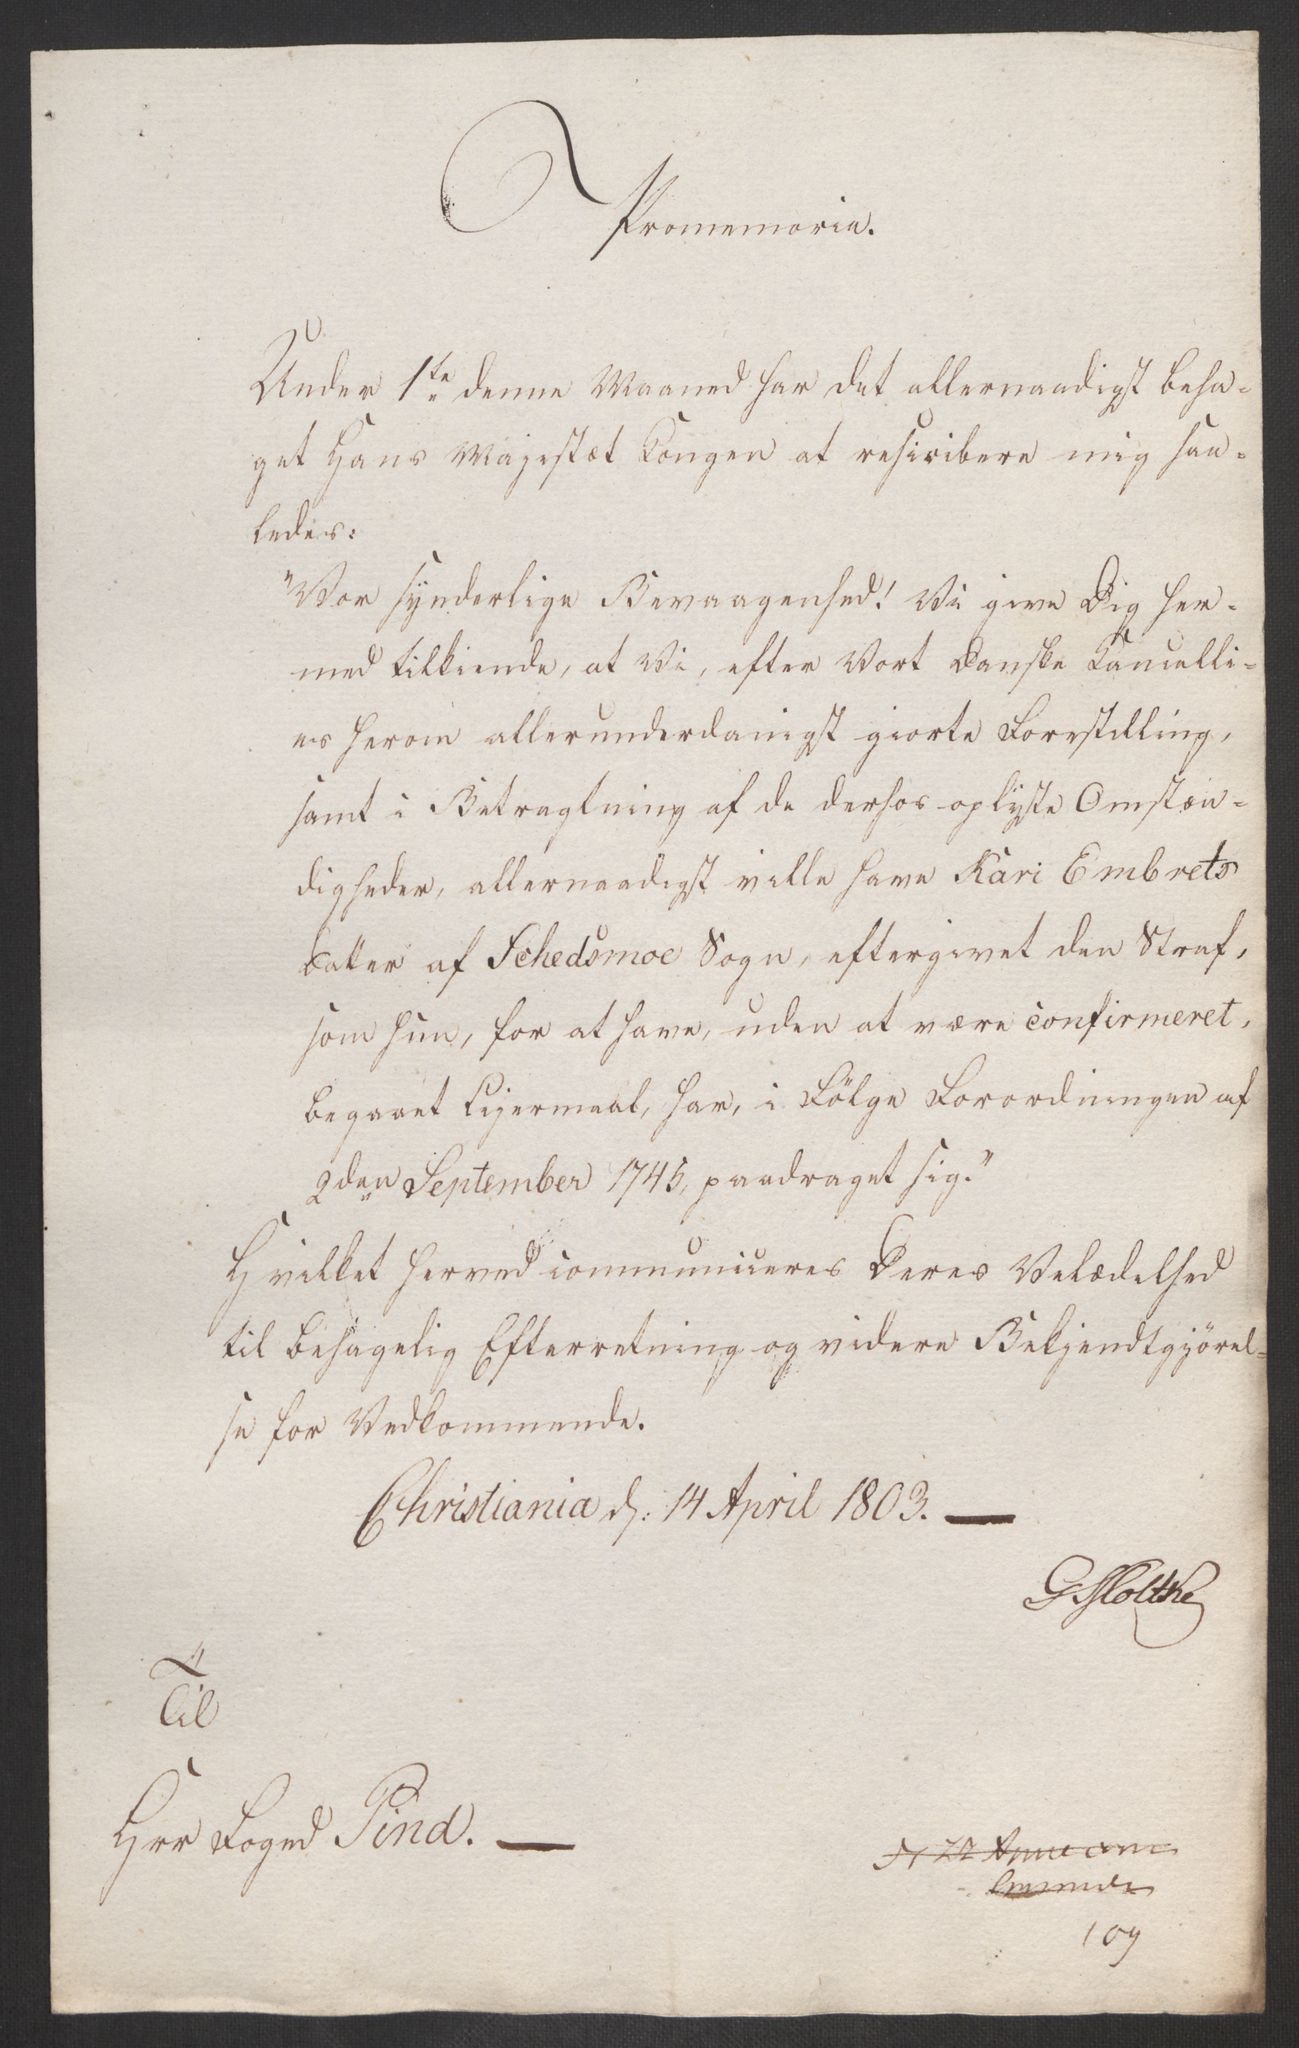 Promemoria.
Under 1te denne Maaned har det allernaadigst beha-
get Hans Majestæt Kongen at rescribere mig saa-
ledes:
"Vor synderlige Bevaagenhed! Vi give Dig her-
med tilkiende, at Vi, efter Vort Danske Cancelli-
es herom allerunderdanigst giorte Forestilling,
samt i Betragtning af de derhos oplyste Omstæn-
digheder, allernaadigst ville have Kari Embrets
datter af Schedsmoe Sogn, eftergivet den Straf,
som hun, for at have, uden at være confirmeret,
begaaet Lejermaal, har, i Følge Forordningen af
2den September 1745, paadraget sig."
Hvilket herved communiceres Deres Velædelhed
til behagelig Efterretning og videre Bekjendtgjørel-
se for Vedkommende.
Christiania d: 14 April 1803.
G Moltke
Til
Hrr Foged Pind.
109